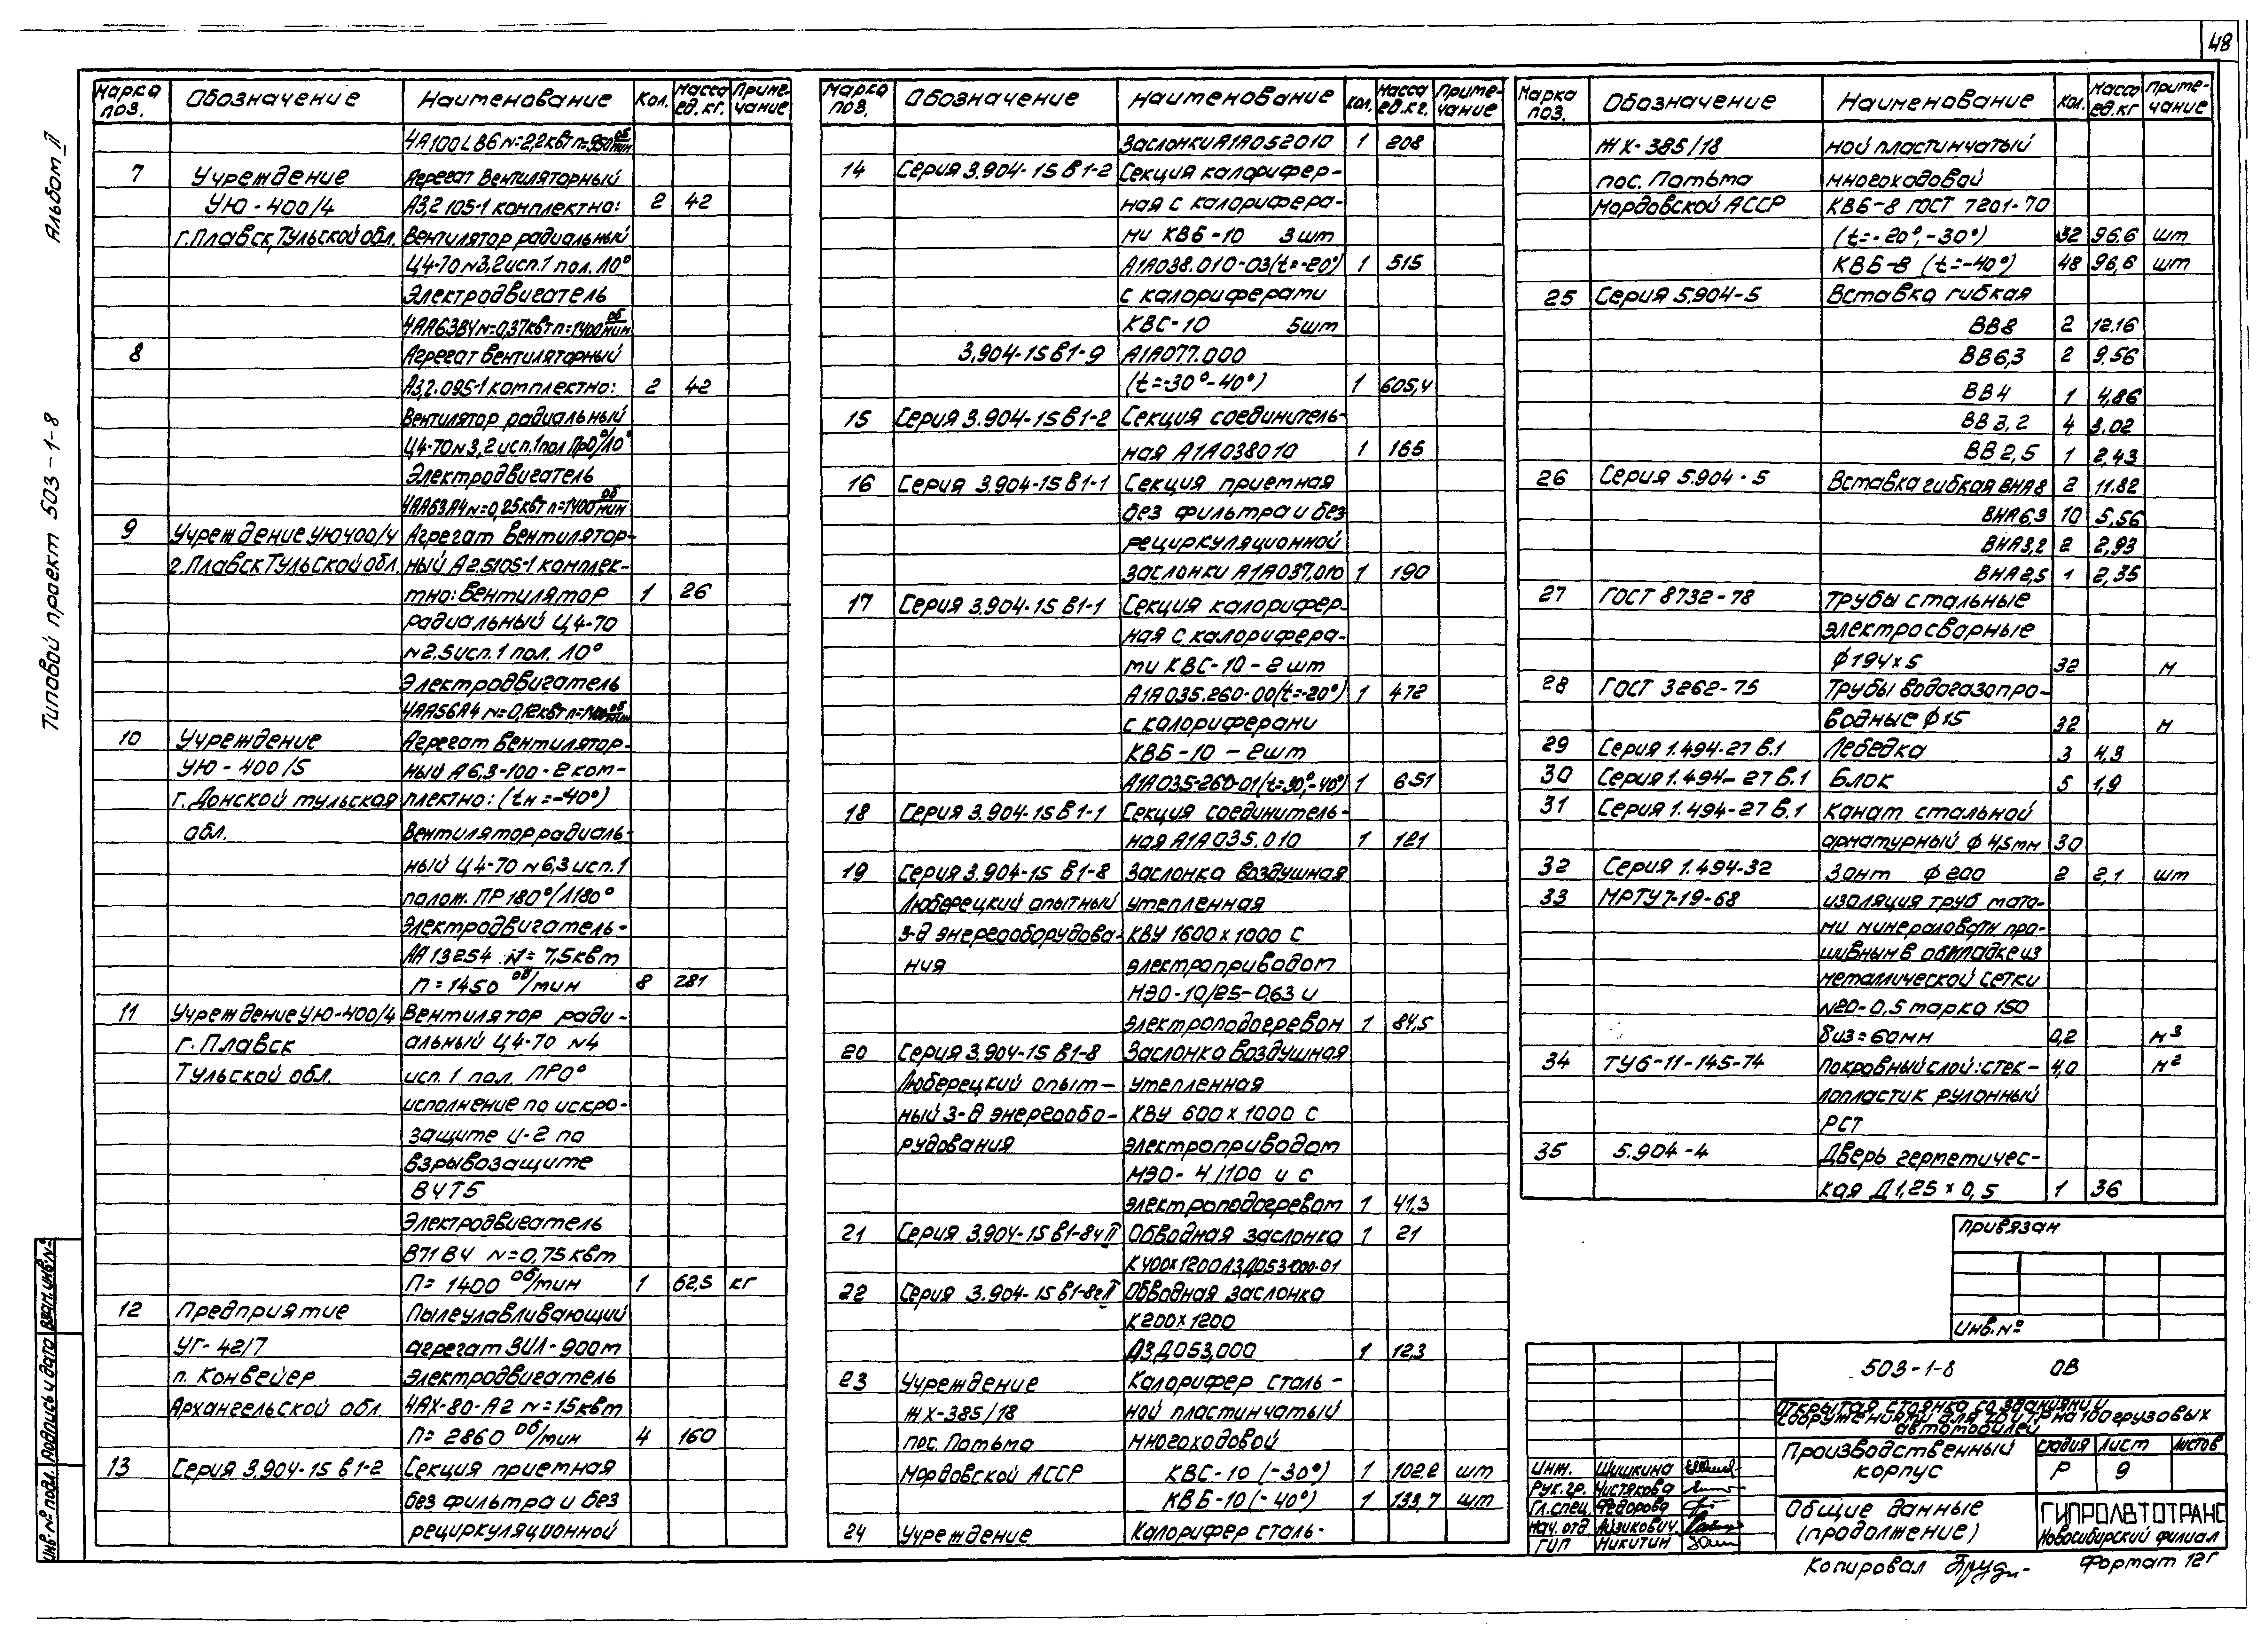 48
Альбом II
Типовой проект 503-1-8
Марка поз. Обозначение Наименование Кол. Масса ед.кг. Приме-чание
4А100LB6 N=2,2квт n=950 об/мин
7 Учреждение Агрегат вентиляторный
УЮ-400/4 А3,2 105-1 комплектно: 2 42
г.Плавск, Тульской обл. Вентилятор радиальный
Ц4-70 N3,2 исп.1 пол. Л0°
Электродвигатель
4АА63В4 N=0,37квт n=1400 об/мин
8 Агрегат вентиляторный
А3,2.095-1 комплектно: 2 42
Вентилятор радиальный
Ц4-70 N3,2 исп.1 пол Пр0°/Л0°
Электродвигатель
4АА63А4 N=0,25квт n=1400 об/мин
9 Учреждение УЮ400/4 Агрегат вентилятор-
г.Плавск Тульской обл. ный А2.5105-1 комплек-
тно: Вентилятор 1 26
радиальный Ц4-70
N2,5 исп.1 пол. Л0°
Электродвигатель
4АА56А4 N=0,12квт n=1400 об/мин
10 Учреждение Агрегат вентилятор-
УЮ-400/5 ный А6,3-100-2 ком-
г. Донской тульская плектно: (tн=-40°)
обл. Вентилятор радиаль-
ный Ц4-70 N6,3 исп.1
полож. ПР180°/Л180°
Электродвигатель-
АА132S4 N=7,5квт
П=1450 об/мин 8 281
11 Учреждение УЮ-400/4 Вентилятор ради-
г. Плавск альный Ц4-70 N4
Тульской обл. исп.1 пол. ПР0°
исполнение по искро-
защите И-2 по
взрывозащите
В4Т5
Электродвигатель
В71В4 N=0,75квт
П=1400 об/мин 1 62,5 кг
12 Предприятие Пылеулавливающий
УГ-42/7 агрегат ЗИЛ-900м
п. Конвейер Электродвигатель
Архангельской обл. 4АХ-80-А2 N=15квт
П=2860 об/мин 4 160
13 Серия 3.904-15 в1-2 Секция приемная
без фильтра и без
рециркуляционной
Марка поз. Обозначение Наименование Кол. Масса ед.кг. Приме-чание
Заслонки А1А052010 1 208
14 Серия 3.904-15 в1-2 Секция калорифер-
ная с калорифера-
ми КВБ-10 3шт
А1А038.010-03(t=-20°) 1 515
с калориферами
КВС-10 5шт
3.904-15 в1-9 А1А077.000
(t=-30°-40°) 1 605,4
15 Серия 3.904-15 в1-2 Секция соединитель-
ная А1А038010 1 165
16 Серия 3.904-15 в1-1 Секция приемная
без фильтра и без
рециркуляционной
заслонки А1А037.010 1 190
17 Серия 3.904-15 в1-1 Секция калорифер-
ная с калорифера-
ми КВС-10-2шт
А1А035.260-00(t=-20°) 1 472
с калориферами
КВБ-10-2шт
А1А035-260-01(t=30°,-40°) 1 651
18 Серия 3.904-15 в1-1 Секция соединитель-
ная А1А035.010 1 121
19 Серия 3.904-15 в1-8 Заслонка воздушная
Люберецкий опытный утепленная
з-д энергооборудова- КВУ 1600х1000 С
ния электроприводом
МЭО-10/25-0,63 и
электроподогревом 1 84,5
20 Серия 3.904-15 в1-8 Заслонка воздушная
Люберецкий опыт- утепленная
ный з-д энергообо- КВУ 600х1000 С
рудования электроприводом
МЭО-4/100 и с
электроподогревом 1 41,3
21 Серия 3.904-15 в1-8ч II Обводная заслонка 1 21
К400х1200 А3Д053.000-01
22 Серия 3.904-15 в1-8г II Обводная заслонка
К200х1200
А3Д053,000 1 12,3
23 Учреждение Калорифер сталь-
ЖХ-385/18 ной пластинчатый
пос. Потьма многоходовой
Мордовской АССР КВС-10 (-30°) 1 102,2 шт
КВБ-10 (-40°) 1 133,7 шт
24 Учреждение Калорифер сталь-
Марка поз. Обозначение Наименование Кол. Масса ед.кг Приме-чание
ЖХ-385/18 ной пластинчатый
пос. Потьма многоходовой
Мордовской АССР КВБ-8 ГОСТ 7201-70
(t=-20°,-30°) 32 96.6 шт
КВБ-8 (t=-40°) 48 96,6 шт
25 Серия 5.904-5 Вставка гибкая
ВВ8 2 12.16
ВВ6,3 2 9.56
ВВ4 1 4,86
ВВ3,2 4 3.02
ВВ2,5 1 2,43
26 Серия 5.904-5 Вставка гибкая ВНА8 2 11.82
ВНА6,3 10 5,56
ВНА3,2 2 2,93
ВНА2,5 1 2,35
27 ГОСТ 8732-78 Трубы стальные
электросварные
ф194х5 32 м
28 ГОСТ 3262-75 Трубы водогазопро-
водные ф15 32 м
29 Серия 1.494-27 в.1 Лебедка 3 4,3
30 Серия 1.494-27 в.1 Блок 5 1,9
31 Серия 1.494-27 в.1 Канат стальной
арматурный ф 4,5мм 30
32 Серия 1.494-32 Зонт ф200 2 2,1 шт
33 МРТУ7-19-68 изоляция труб мата-
ми минераловатн про-
шивным в обкладке из
металлической сетки
N20-0,5 марка 150
биз=60мм 0,2 м³
34 ТУ6-11-145-74 Покровный слой: стек- 4,0 м²
лопластик рулонный
РСТ
35 5.904-4 Дверь герметичес-
кая Д1,25х0,5 1 36
Привязан
Инв.№
503-1-8 ОВ
Открытая стоянка со зданиями и
сооружениями для ТО и ТР на 100 грузовых
автомобилей
Производственный корпус
Стадия Лист Листов
Р 9
Общие данные (продолжение)
ГИПРОАВТОТРАНС
Новосибирский филиал
Инж. Шишкина
Рук.гр. Чистякова
Гл.спец. Федорова
Нач.отд Айзикович
ГИП Никитин
Копировал
Формат 12г
Инв.№ подл. Подпись и дата Взам.инв.№